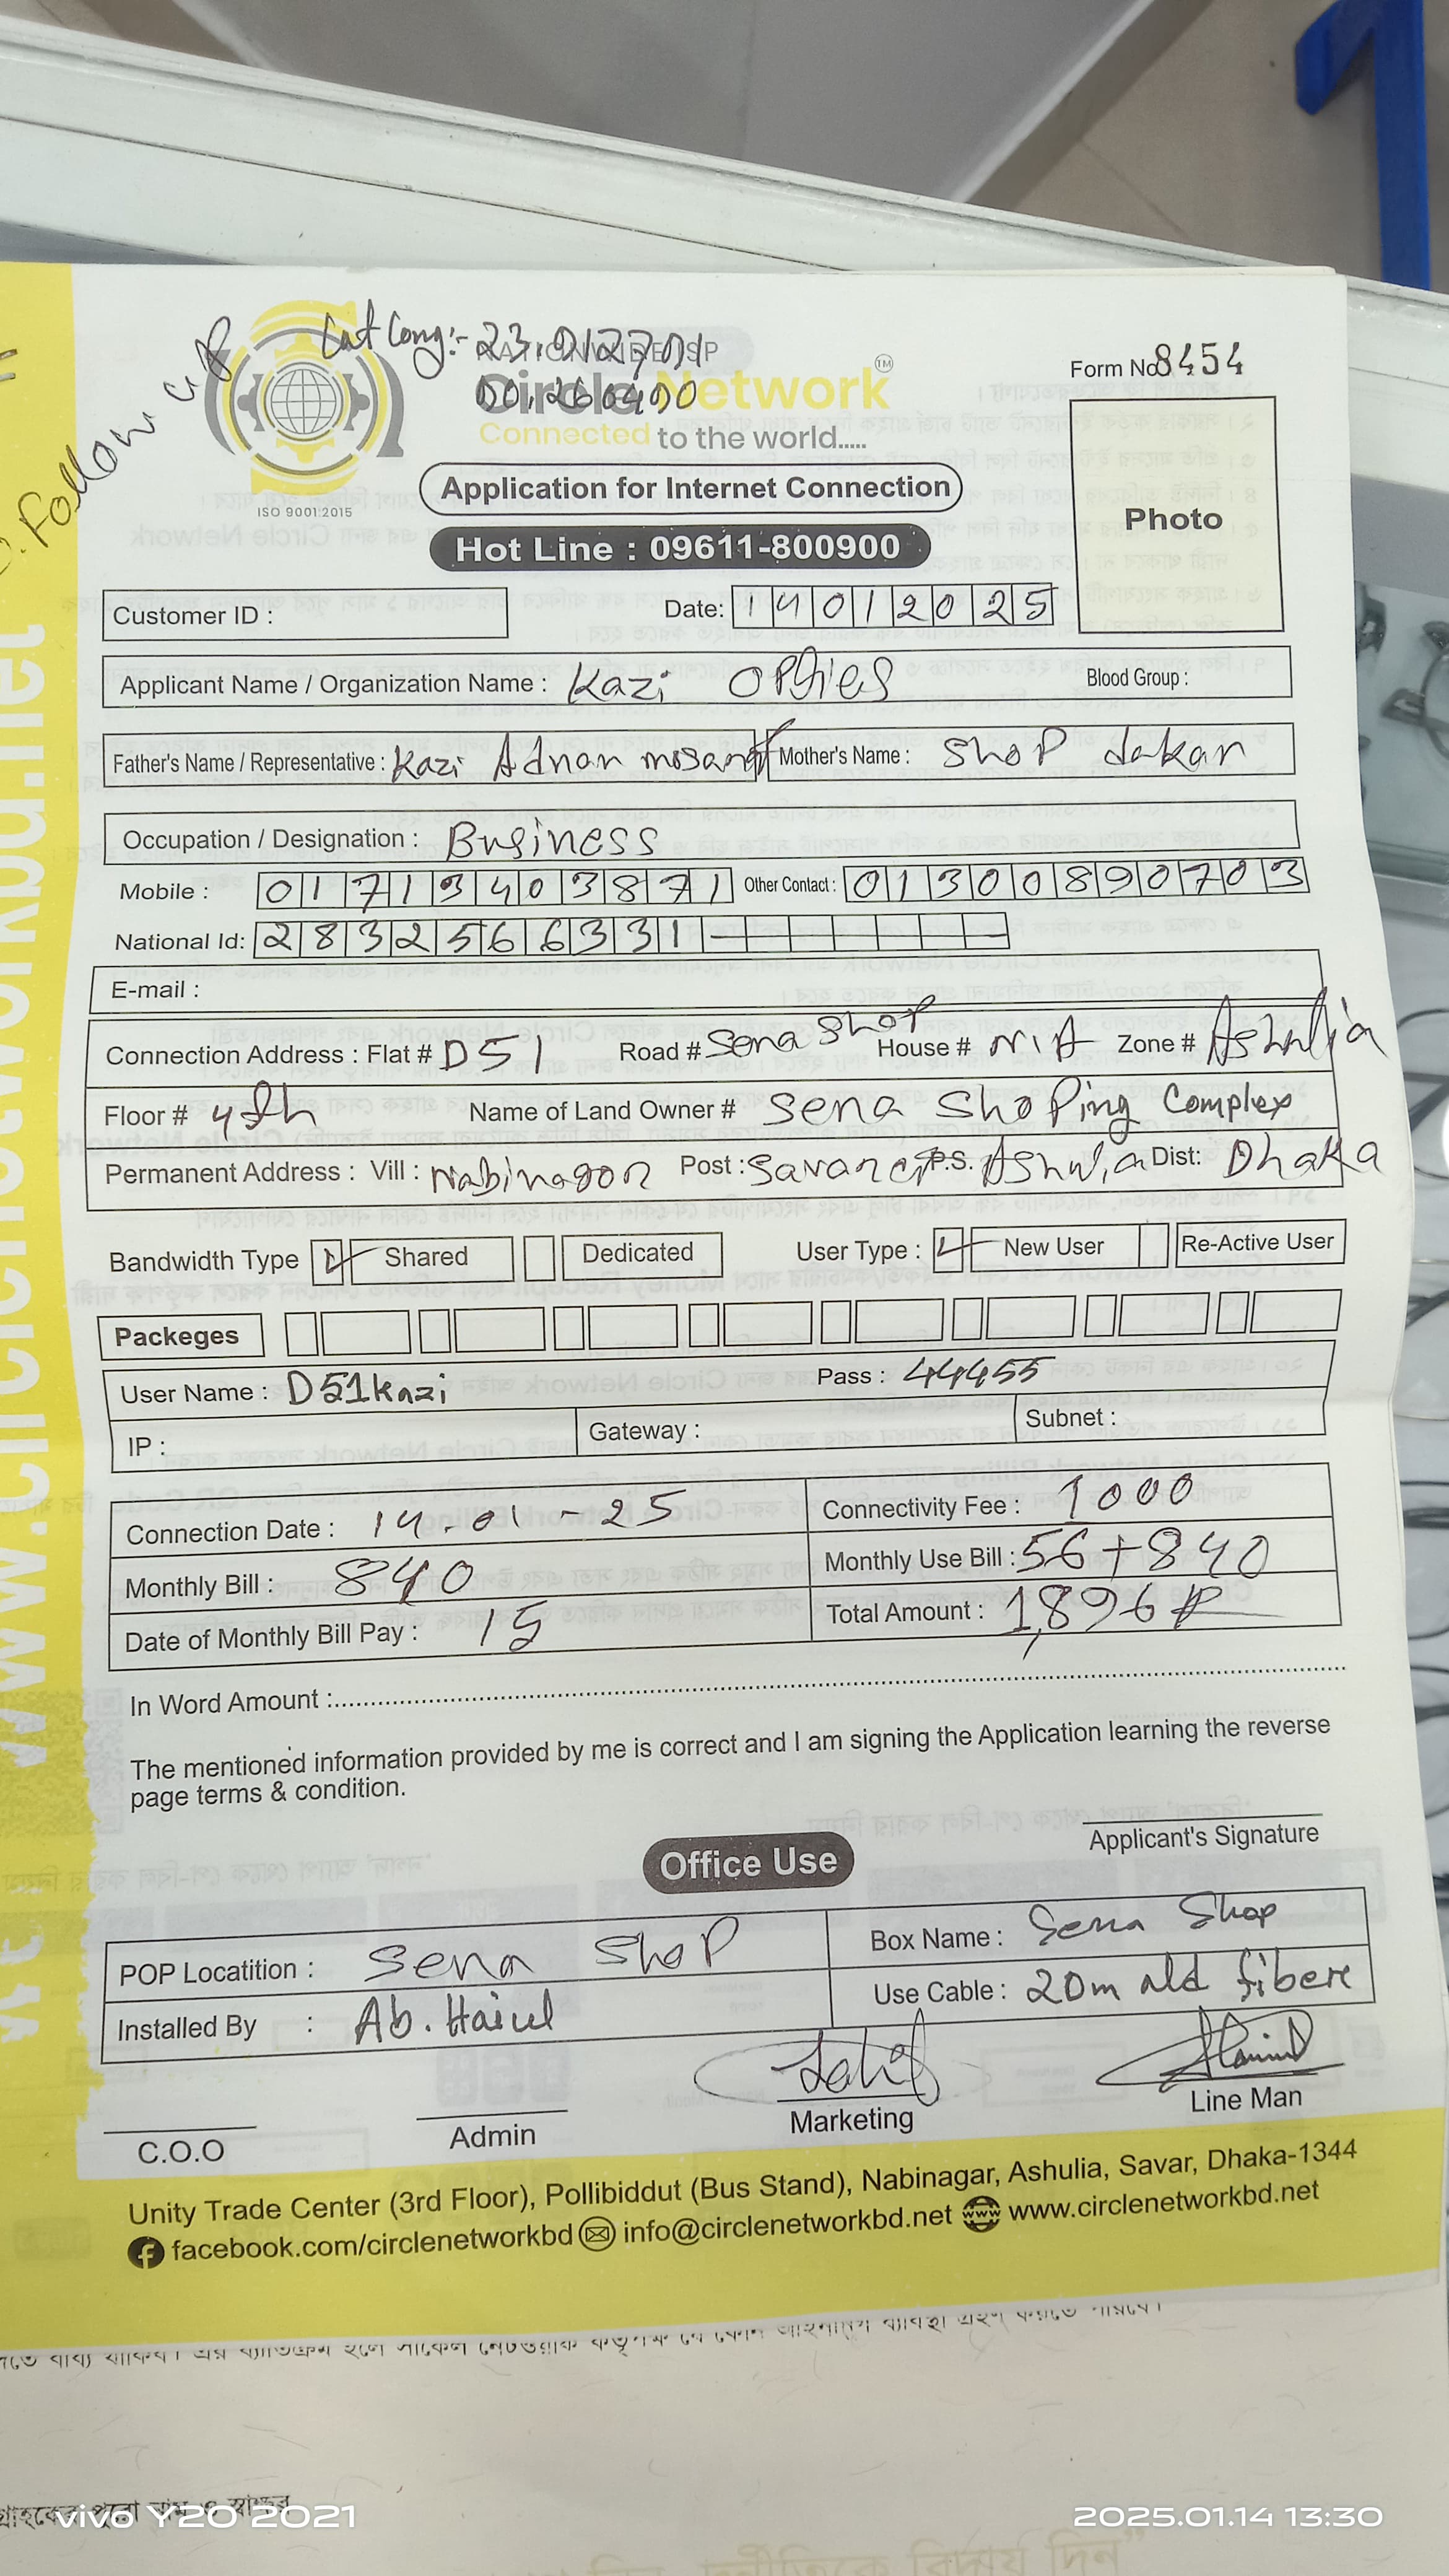 Follow up
Lat Long:- 23.912701
NATIONWIDE ISP
90.260490
Circle Network TM
Connected to the world.....
ISO 9001:2015
Form No 8454
Application for Internet Connection
Photo
Hot Line : 09611-800900
Customer ID :
Date: 14012025
Applicant Name / Organization Name : Kazi Optics
Blood Group :
Father's Name / Representative : Kazi Adnan
Mother's Name : Shop dakan
Occupation / Designation : Business
Mobile : 01713403871 Other Contact : 01300890703
National Id: 2832566331
E-mail :
Connection Address : Flat # D51 Road # Sena Shop House # N/A Zone # Ashulia
Floor # 4th Name of Land Owner # Sena Shoping Complex
Permanent Address : Vill : Nabinagor Post : Savar P.S. Ashulia Dist: Dhaka
Bandwidth Type Shared Dedicated User Type : New User Re-Active User
Packeges
User Name : D51kazi Pass : 44455
IP : Gateway : Subnet :
Connection Date : 14-01-25 Connectivity Fee : 1000
Monthly Bill : 840 Monthly Use Bill : 56+840
Date of Monthly Bill Pay : 15 Total Amount : 1,896
In Word Amount :
The mentioned information provided by me is correct and I am signing the Application learning the reverse
page terms & condition.
Applicant's Signature
Office Use
POP Locatition : Sena Shop Box Name : Sena Shop
Installed By : Ab. Haiul Use Cable : 20m old fibere
C.O.O Admin Marketing Line Man
Unity Trade Center (3rd Floor), Pollibiddut (Bus Stand), Nabinagar, Ashulia, Savar, Dhaka-1344
facebook.com/circlenetworkbd info@circlenetworkbd.net www.circlenetworkbd.net
www.circlenetworkbd.net
vivo Y20 2021
2025.01.14 13:30